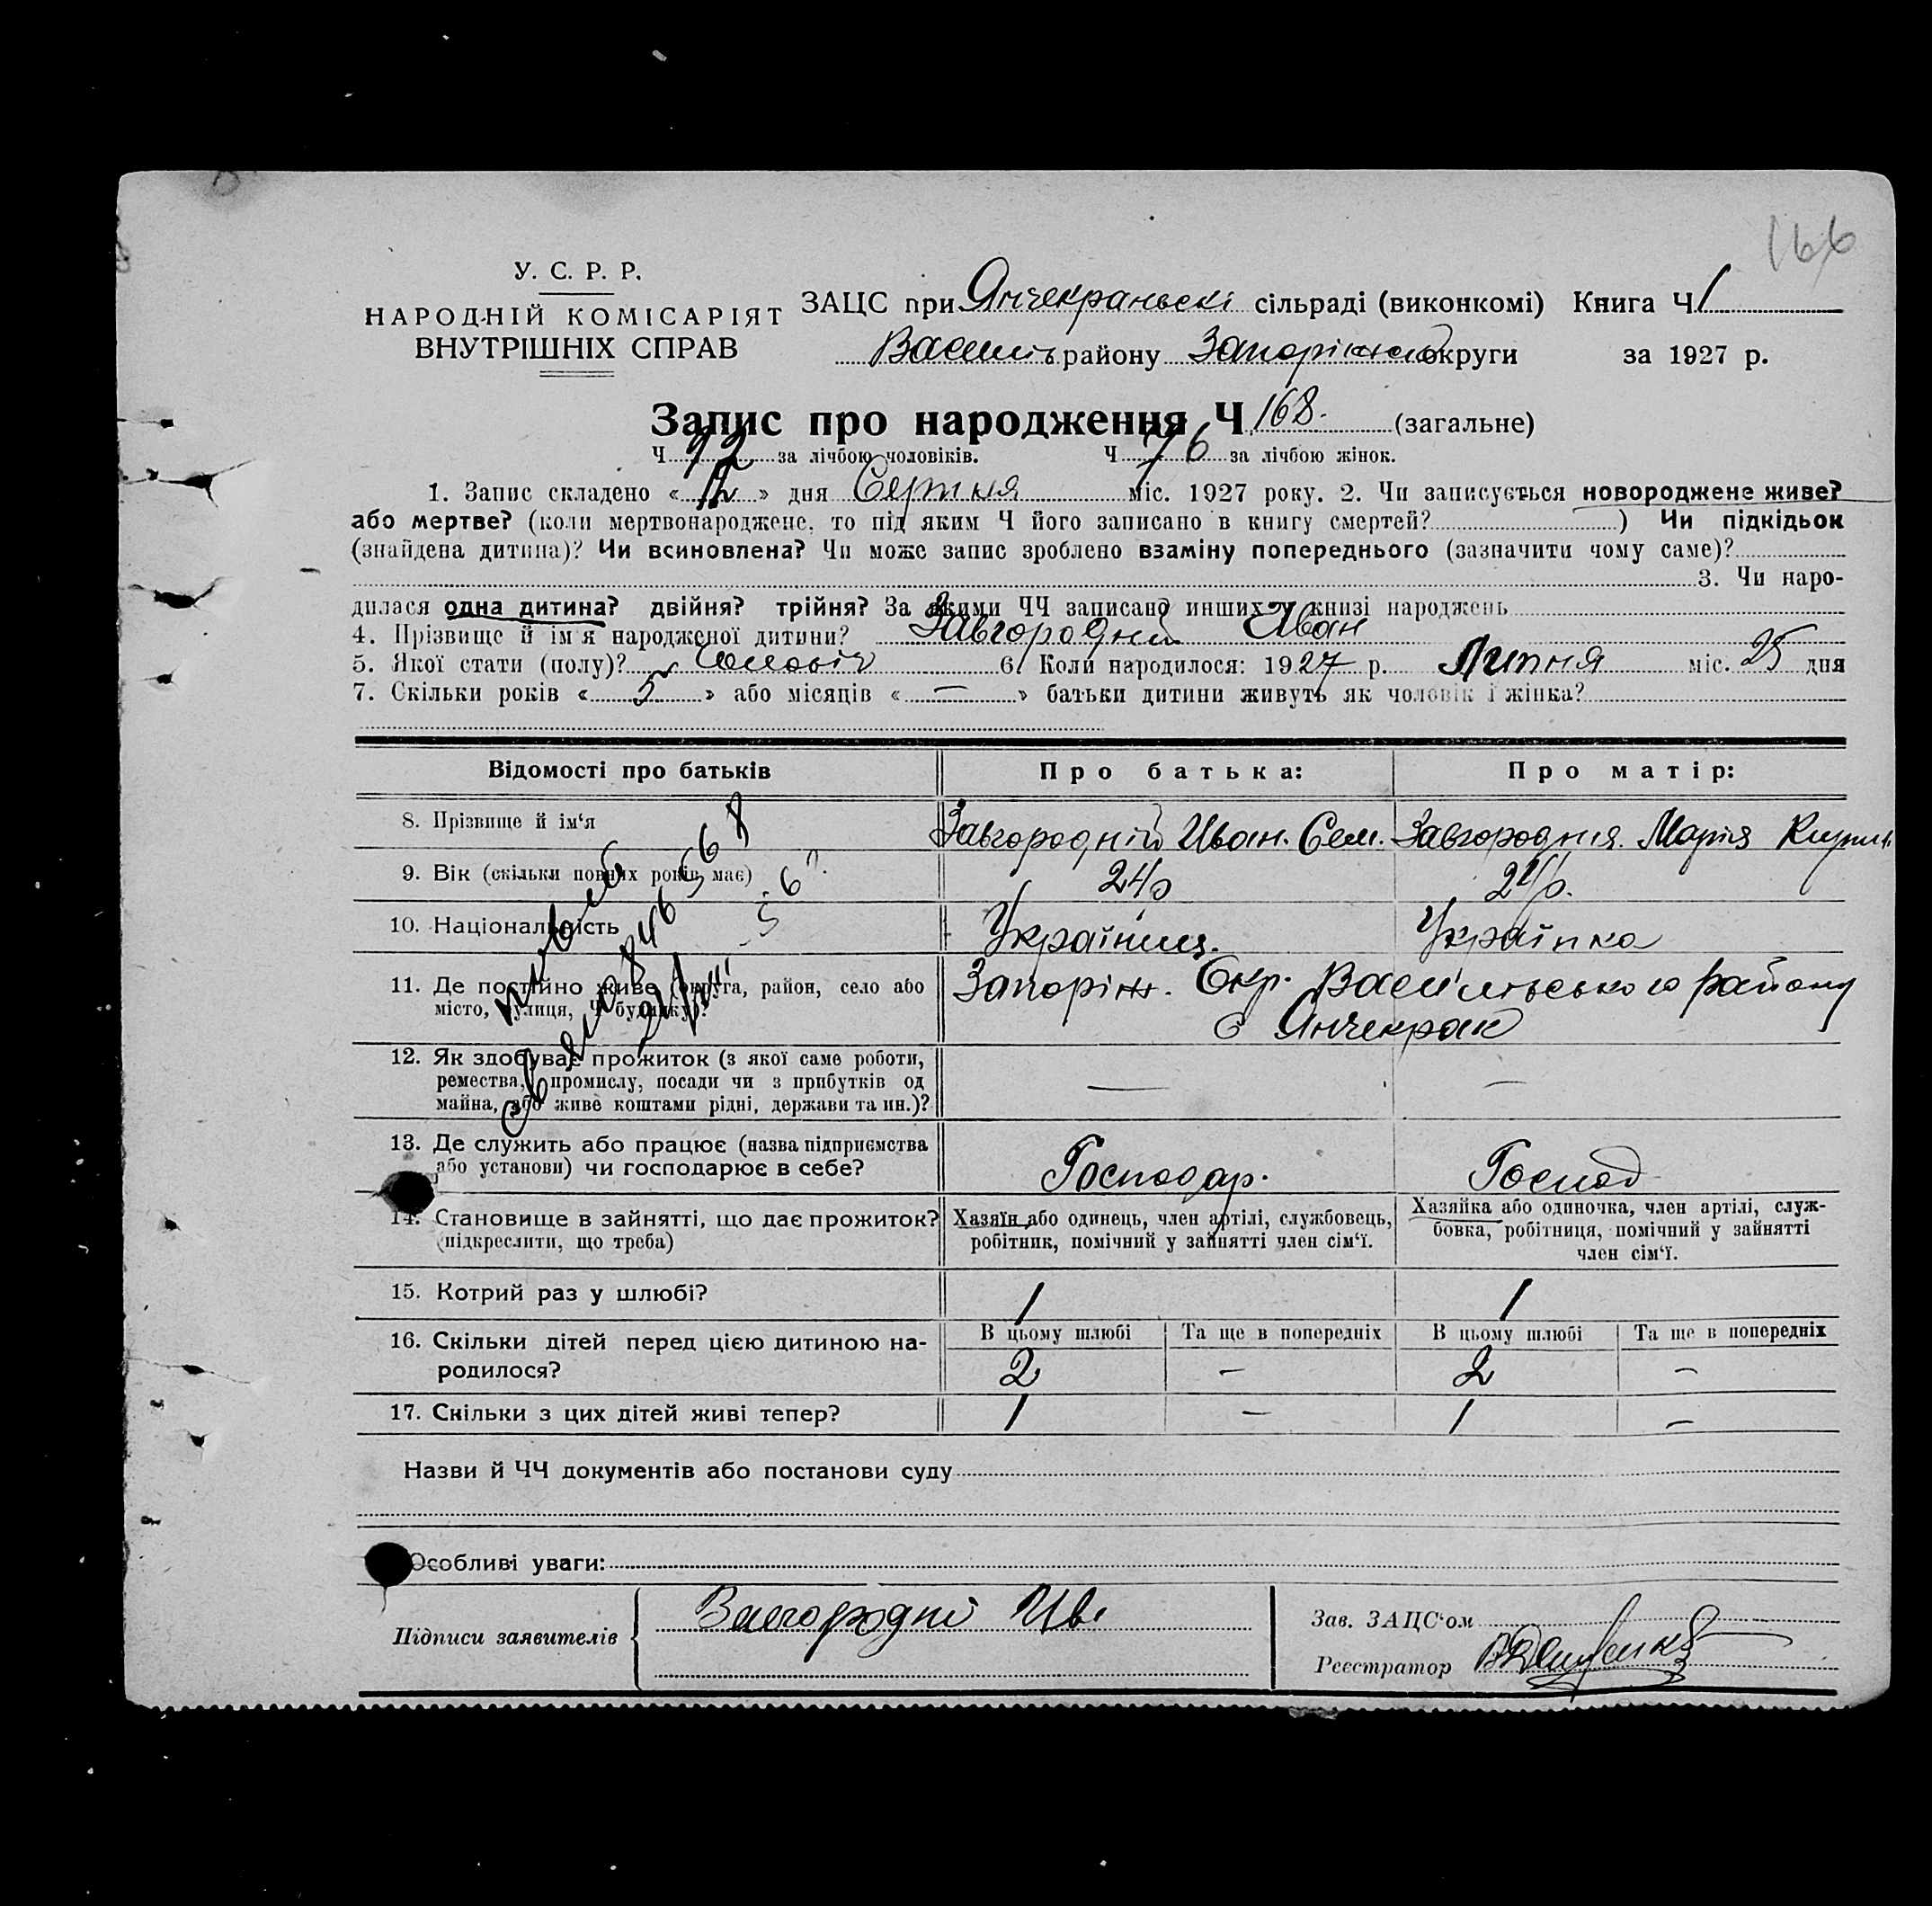 166
У. С. Р. Р.
НАРОДНІЙ КОМІСАРІЯТ
ВНУТРІШНІХ СПРАВ
ЗАЦС при Янчекраньскі сільраді (виконкомі) Книга Ч 1
Василів району Запоріжской округи за 1927 р.
Запис про народження Ч 168. (загальне)
Ч 92 за лічбою чоловіків. Ч 76 за лічбою жінок.
1. Запис складено « 12 » дня Серпня міс. 1927 року. 2. Чи записується новороджене живе?
або мертве? (коли мертвонароджене, то під яким Ч його записано в книгу смертей? ) Чи підкідьок
(знайдена дитина)? Чи всиновлена? Чи може запис зроблено взаміну попереднього (зазначити чому саме)?
3. Чи наро-
дилася одна дитина? двійня? трійня? За якими ЧЧ записано инших у книзі народжень
4. Прізвище й ім'я народженої дитини? Завгородний Иван
5. Якої стати (полу)? 6. Коли народилося: 1927 р. Липня міс. 25 дня
7. Скільки років « 5 » або місяців « — » батьки дитини живуть як чоловік і жінка?
Відомості про батьків Про батька: Про матір:
8. Прізвище й ім'я Завгородній Иван. Сем. Завгородня. Марія Кирил.
9. Вік (скільки повних років має) 24р 24р.
10. Національність Українец. Українка
11. Де постійно живе (округа, район, село або
місто, вулиця, Ч будинку)?
Запоріж. Окр. Василівського району
с Янчекрак
12. Як здобуває прожиток (з якої саме роботи,
ремества, промислу, посади чи з прибутків од
майна, або живе коштами рідні, держави та ин.)?
— —
13. Де служить або працює (назва підприємства
або установи) чи господарює в себе?
Господар. Господ
14. Становище в зайнятті, що дає прожиток?
(підкреслити, що треба)
Хазяїн або одинець, член артілі, службовець,
робітник, помічний у зайнятті член сім'ї.
Хазяйка або одиночка, член артілі, служ-
бовка, робітниця, помічний у зайнятті
член сім'ї.
15. Котрий раз у шлюбі? 1 1
16. Скільки дітей перед цією дитиною на-
родилося?
В цьому шлюбі Та ще в попередніх В цьому шлюбі Та ще в попередніх
2 — 2 —
17. Скільки з цих дітей живі тепер? 1 — 1 —
Назви й ЧЧ документів або постанови суду
Особливі уваги:
Підписи заявителів Завгородні Ив.
Зав. ЗАЦС'ом
Реєстратор